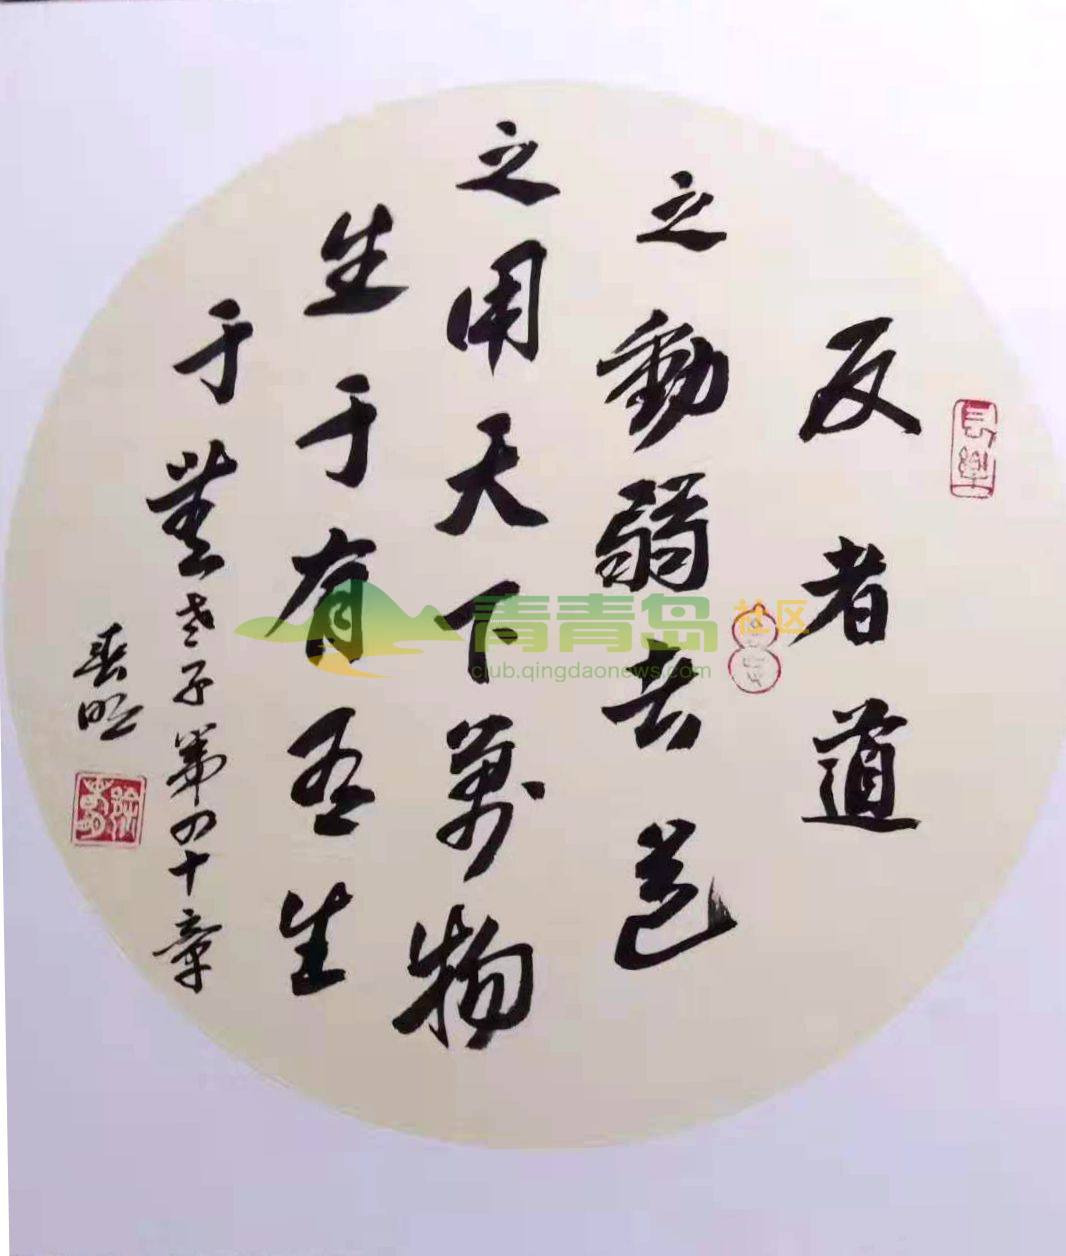 反者道
之動弱者道
之用天下萬物
生于有有生
于無老子第四十章
春明
青青岛社区
club.qingdaonews.com